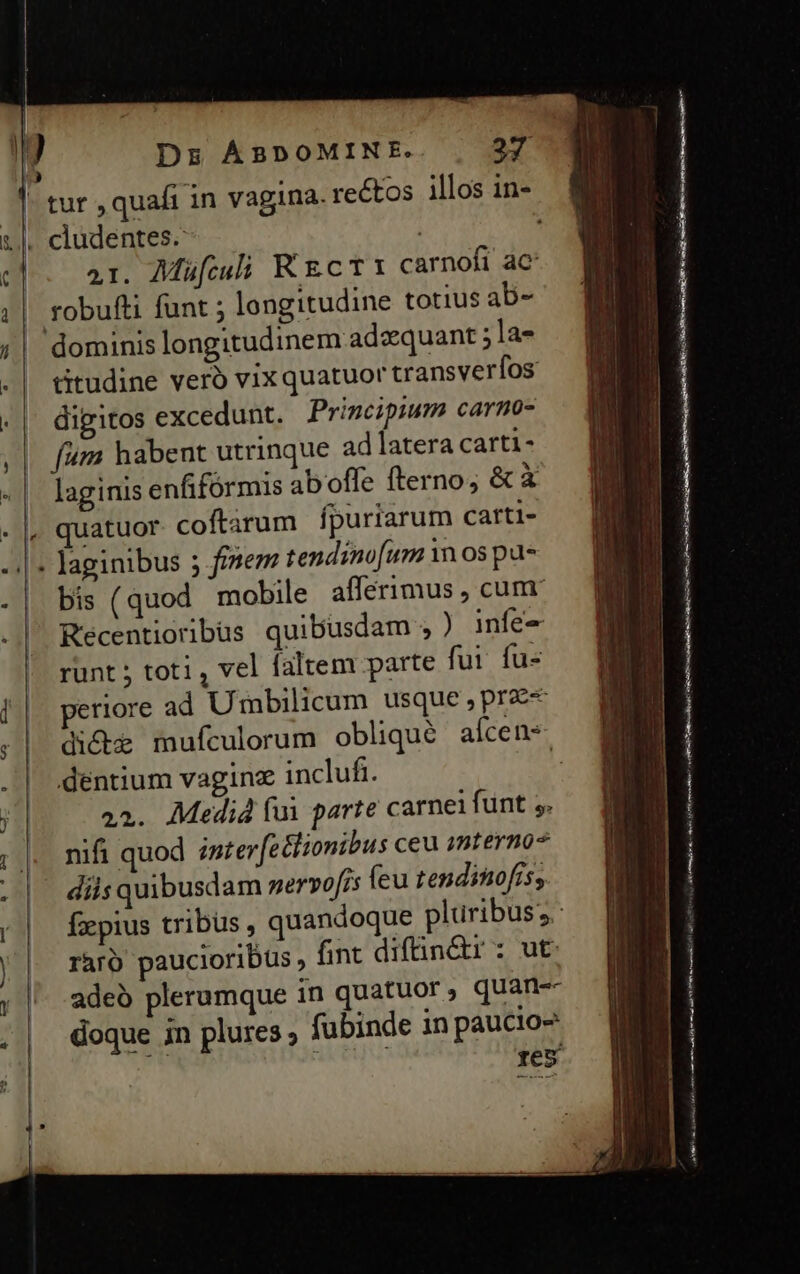 De Abdomine. 37
tur, quaſi in vagina rectos illos in-
cludentes.
21. Muſculi Recti carnoſi ac
robuſti ſunt; longitudine totius ab-
dominis longitudinem adæquant; la-
titudine verò vix quatuor transverſos
digitos excedunt. Principium carno-
ſum habent utrinque ad latera carti-
laginis enſiformis ab oſſe ſterno, & à
quatuor coſtarum ſpuriarum carti-
laginibus; finem tendinoſum in os pu-
bis (quod mobile aſſerimus, cum
Recentioribus quibusdam,) inſe-
runt; toti, vel ſaltem parte ſui ſu-
periore ad Umbilicum usque, præ-
dictæ muſculorum obliquè aſcen-
dentium vaginæ incluſi.
22. Mediâ ſui parte carnei ſunt,
niſi quod interſectionibus ceu interno-
diis quibusdam nervoſis ſeu tendinoſis,
ſæpius tribus, quandoque pluribus,
rarò paucioribus, ſint diſtincti: ut
adeò plerumque in quatuor, quan-
doque in plures, ſubinde in paucio-
res